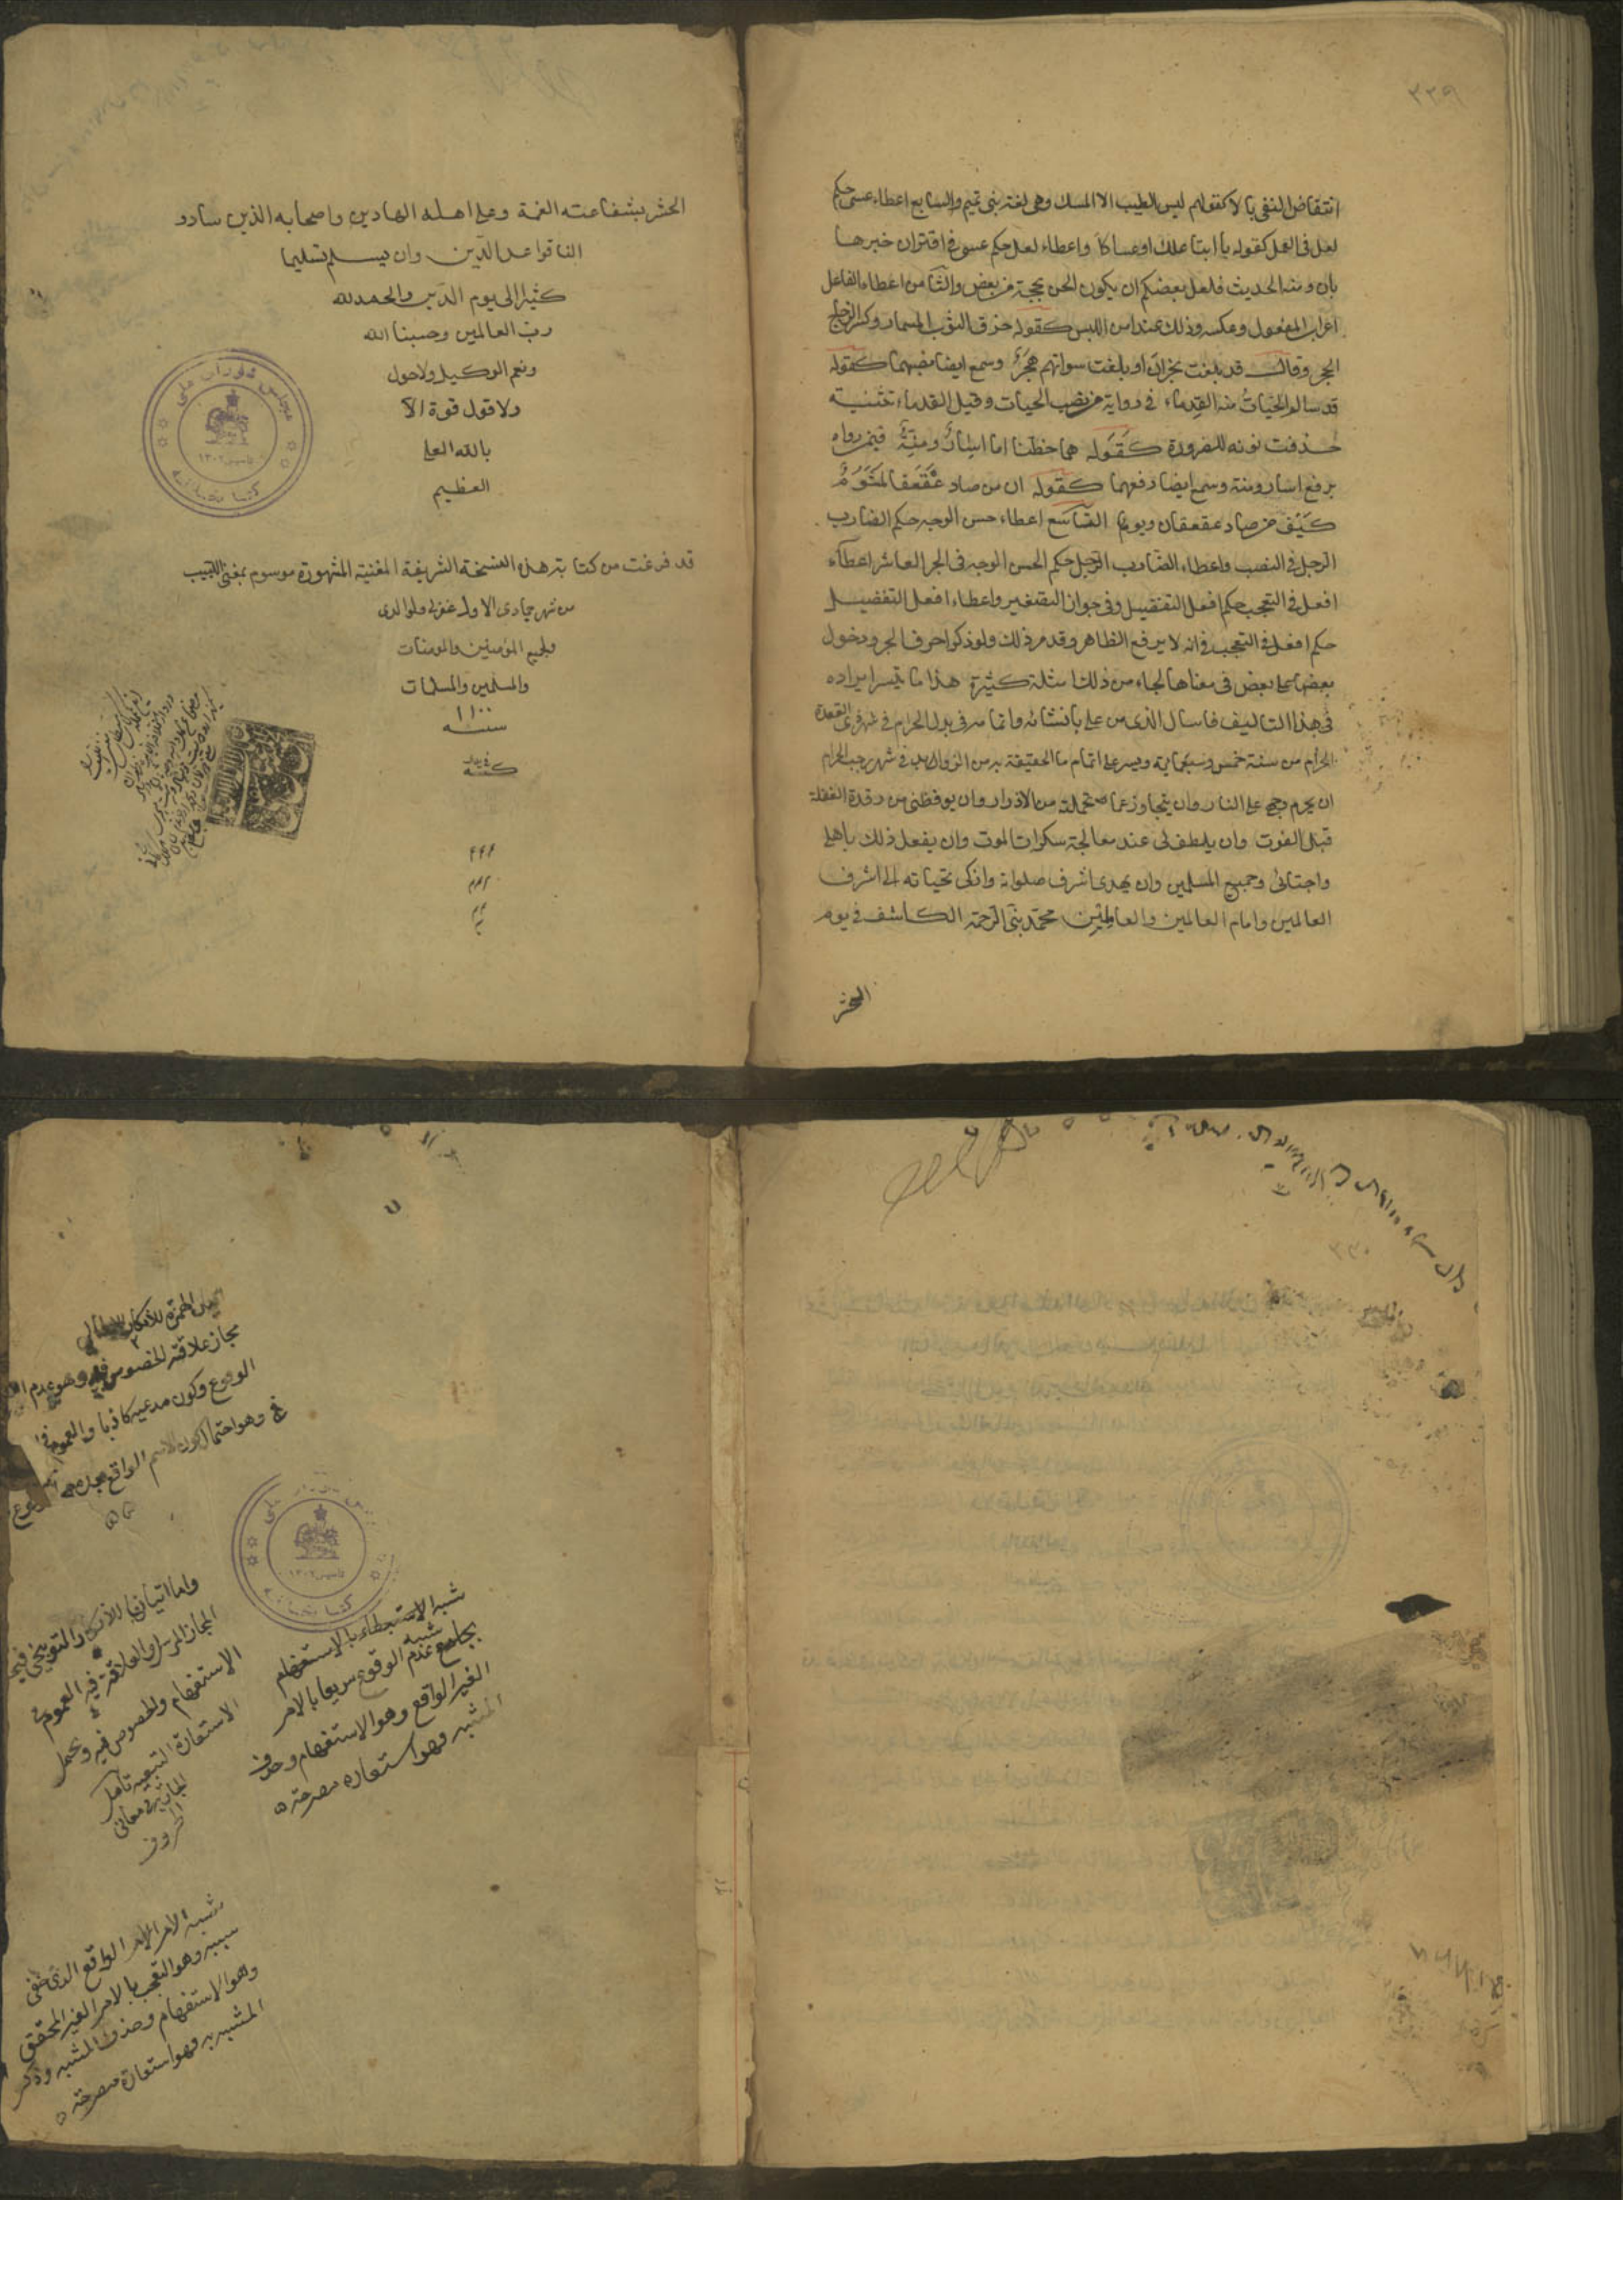 ٣٣٩
انتقاض النفى بالا كقولهم ليس الطيب الا المسك وهى لغة بنى تميم والسابع اعطاء عسى حكم
لعل فى العمل كقوله يا ابتا علك او عساكا واعطاء لعل حكم عسى فى اقتران خبرها
بان ومنه الحديث فلعل بعضكم ان يكون الحن بحجته من بعض والثامن اعطاء الفاعل
اعراب المفعول وعكسه وذلك عند امن اللبس كقوله خرق الثوب المسمار وكسر الزجاج
الحجر وقال قد بلغت نجران او بلغت سواتهم هجر وسمع ايضا نصبهما كقوله
قد سالم الحيات منه القدماء فى رواية من نصب الحيات وقيل القدماء تثنية
حذفت نونه للضرورة كقوله هما خطتا اما اسار ومنة فيمن رواه
برفع اسار ومنة وسمع ايضا رفعهما كقوله ان من صاد عقعقا لمشوم
كيف من صاد عقعقان وبوم التاسع اعطاء حسن الوجه حكم الضارب
الرجل فى النصب واعطاء الضارب الرجل حكم الحسن الوجه فى الجر العاشر اعطاء
افعل فى التعجب حكم افعل التفضيل وفى جواز التصغير واعطاء افعل التفضيل
حكم افعل فى التعجب فى انه لا يرفع الظاهر وقد مر ذلك ولو ذكر احرف الجر ودخول
بعضها على بعض فى معناها لجاء من ذلك امثلة كثيرة هذا ما تيسر ايراده
فى هذا التاليف فاسال الذى من على بانشائه واتمامه فى بلد الحرام فى شهر ذى القعدة
الحرام من سنة خمس وسبعماية ويسر على اتمام ما الحقيقة به من الزوايد فى شهر رجب الحرام
ان يحرم وجهى على النار وان يتجاوز عما تحملته من الاوزار وان يوقظنى من رقدة الغفلة
قبل الفوت وان يلطف لى عند معالجة سكرات الموت وان يفعل ذلك باهلى
واحبائى وجميع المسلمين وان يهدى اشرف صلواته وازكى تحياته الى اشرف
العالمين وامام العالمين والعاملين محمد نبى الرحمة الكاشف فى يوم
الحشر
الحشر بشفاعته الغمة وعلى اهله الهادين واصحابه الذين سادو
النا قواعد الدين وان يسلم تسليما
كثيرا الى يوم الدين والحمد لله
رب العالمين وحسبنا الله
ونعم الوكيل ولا حول
ولا قول قوة الا
بالله العلى
العظيم
مجلس شورای ملی
تاسیس ١٣٠٢
کتابخانه
قد فرغت من كتابته هذه النسخة الشريفة المغنية المشهورة موسوم بمغنى اللبيب
من شهر جمادى الاول غفر لى ولوالدى
ولجميع المؤمنين والمومنات
والمسلمين والمسلمات
١١٠٠
سنه
٣٣٠
مجاز علاقته الخصوص فيه وهو عدم
الوقوع وكون مدعيه كاذبا والعموم فى
وهو احتمال كون الاسم الواقع بعده
واما اتيان للانكار والتوبيخى فيه
المجاز المرسل والعلاقة فيه العموم فى
الاستفهام والخصوص فيه ويحمل
الاستعارة التبعيه تامل
الجارية فى معانى
الحروف
مجلس شورای ملی
تاسیس ١٣٠٢
کتابخانه
شبه الاستبطاء بالاستفهام
شبه
بجامع عدم الوقوع سريعا بالامر
الغير الواقع وهو الاستفهام وحذف
المشبه وهو استعاره مصرحته
شبه الامر الواقع الذى خفى
سببه وهو التعجب بالامر الغير المحقق
وهو الاستفهام وحذف المشبه وذكر
المشبه به وهو استعارة مصرحته